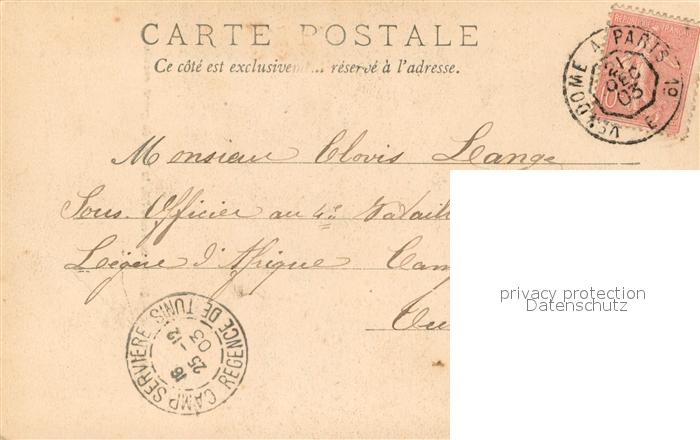 CARTE POSTALE
Ce côté est exclusivem... réservé à l'adresse.
REPUBLIQUE
VENDOME A PARIS
21
DEC
03
10
E
Monsieur Clovis Lange
Sous Officier au 4e Bataill
Légère d'Afrique Camp
Tu
privacy protection
Datenschutz
CAMP SERVIERE REGENCE DE TUNIS
16
25-12
03